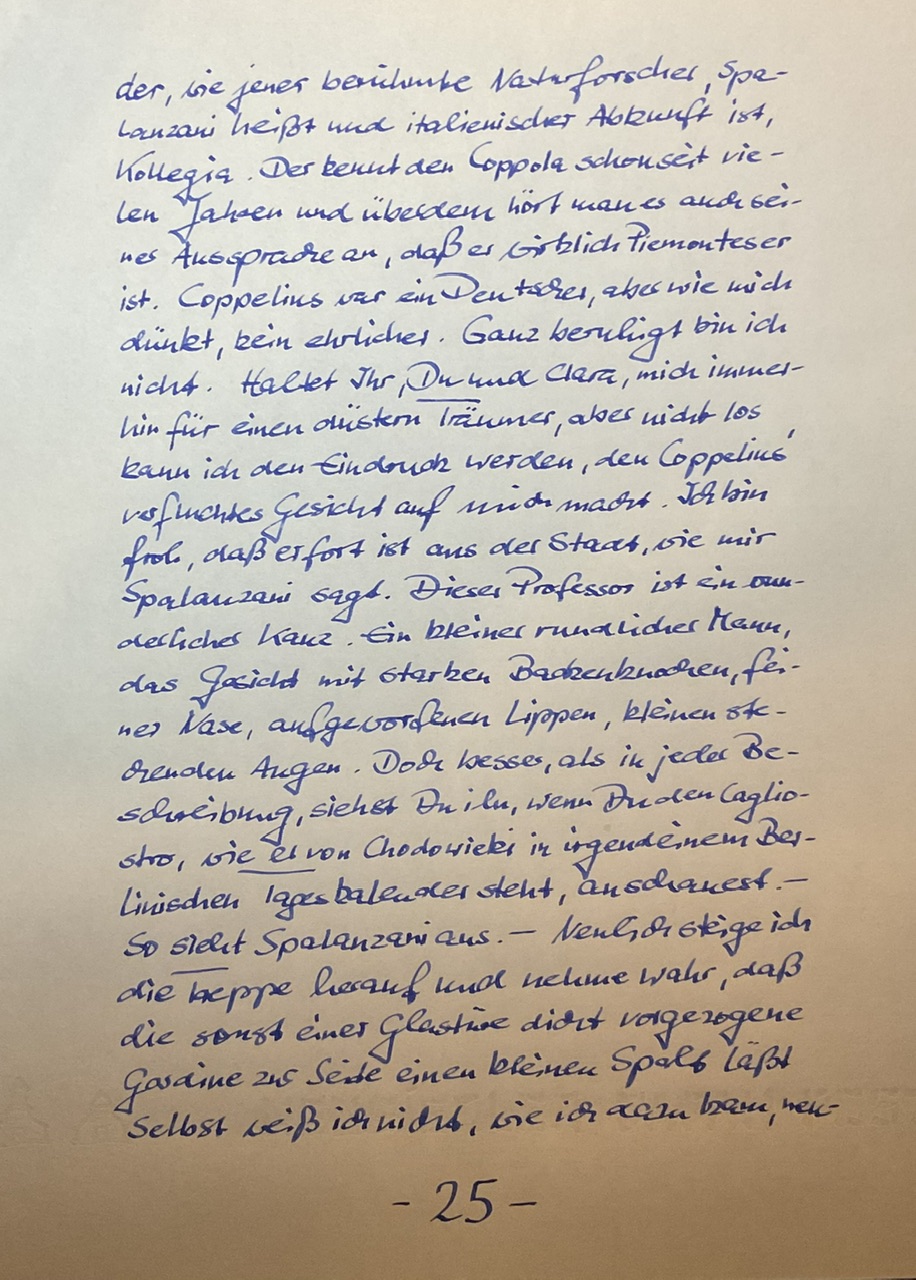 der, wie jener berühmte Naturforscher, Spa-
lanzani heißt und italienischer Abkunft ist,
Kollegia. Der kennt den Coppola schon seit vie-
len Jahren und überdem hört man es auch sei-
ner Aussprache an, daß er wirklich Piemonteser
ist. Coppelius war ein Deutscher, aber wie mich
dünkt, kein ehrlicher. Ganz beruhigt bin ich
nicht. Haltet Ihr, Du und Clara, mich immer-
hin für einen düstern Träumer, aber nicht los
kann ich den Eindruck werden, den Coppelius'
verfluchtes Gesicht auf mich macht. Ich bin
froh, daß er fort ist aus der Stadt, wie mir
Spalanzani sagt. Dieser Professor ist ein wun-
derlicher Kauz. Ein kleiner rundlicher Mann,
das Gesicht mit starken Backenknochen, fei-
ner Nase, aufgeworfenen Lippen, kleinen ste-
chenden Augen. Doch besser, als in jeder Be-
schreibung, siehst Du ihn, wenn Du den Caglio-
stro, wie er von Chodowiecki in irgendeinem Ber-
linischen Tageskalender steht, anschauest.-
So sieht Spalanzani aus.- Neulich steige ich
die Treppe herauf und nehme wahr, daß
die sonst einer Glastüre dicht vorgezogene
Gardine zur Seite einen kleinen Spalt läßt
Selbst weiß ich nicht, wie ich dazu kam, neu-
- 25 -